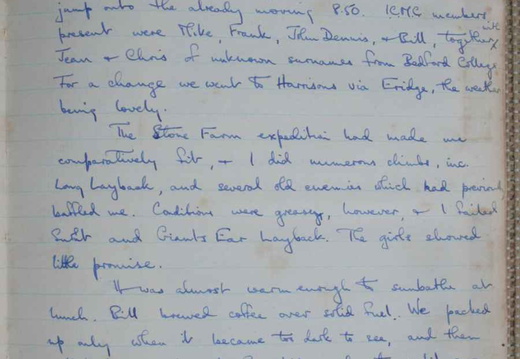 jump onto the already moving 8.50. ICMC members
present were Mike, Frank, John Dennis, & Bill, together with
Jean & Chris of unknown surnames from Bedford College
For a change we went to Harrisons via Eridge, the weather
being lovely.
The Stone Farm expedition had made me
comparatively fit, & I did numerous climbs, inc.
Long Layback, and several old enemies which had previous
baffled me. Conditions were greasy, however, & I failed
and Giants Ear Layback. The girls showed
little promise.
It was almost warm enough to sunbathe at
lunch. Bill brewed coffee over solid fuel. We packed
up only when it became too dark to see, and then